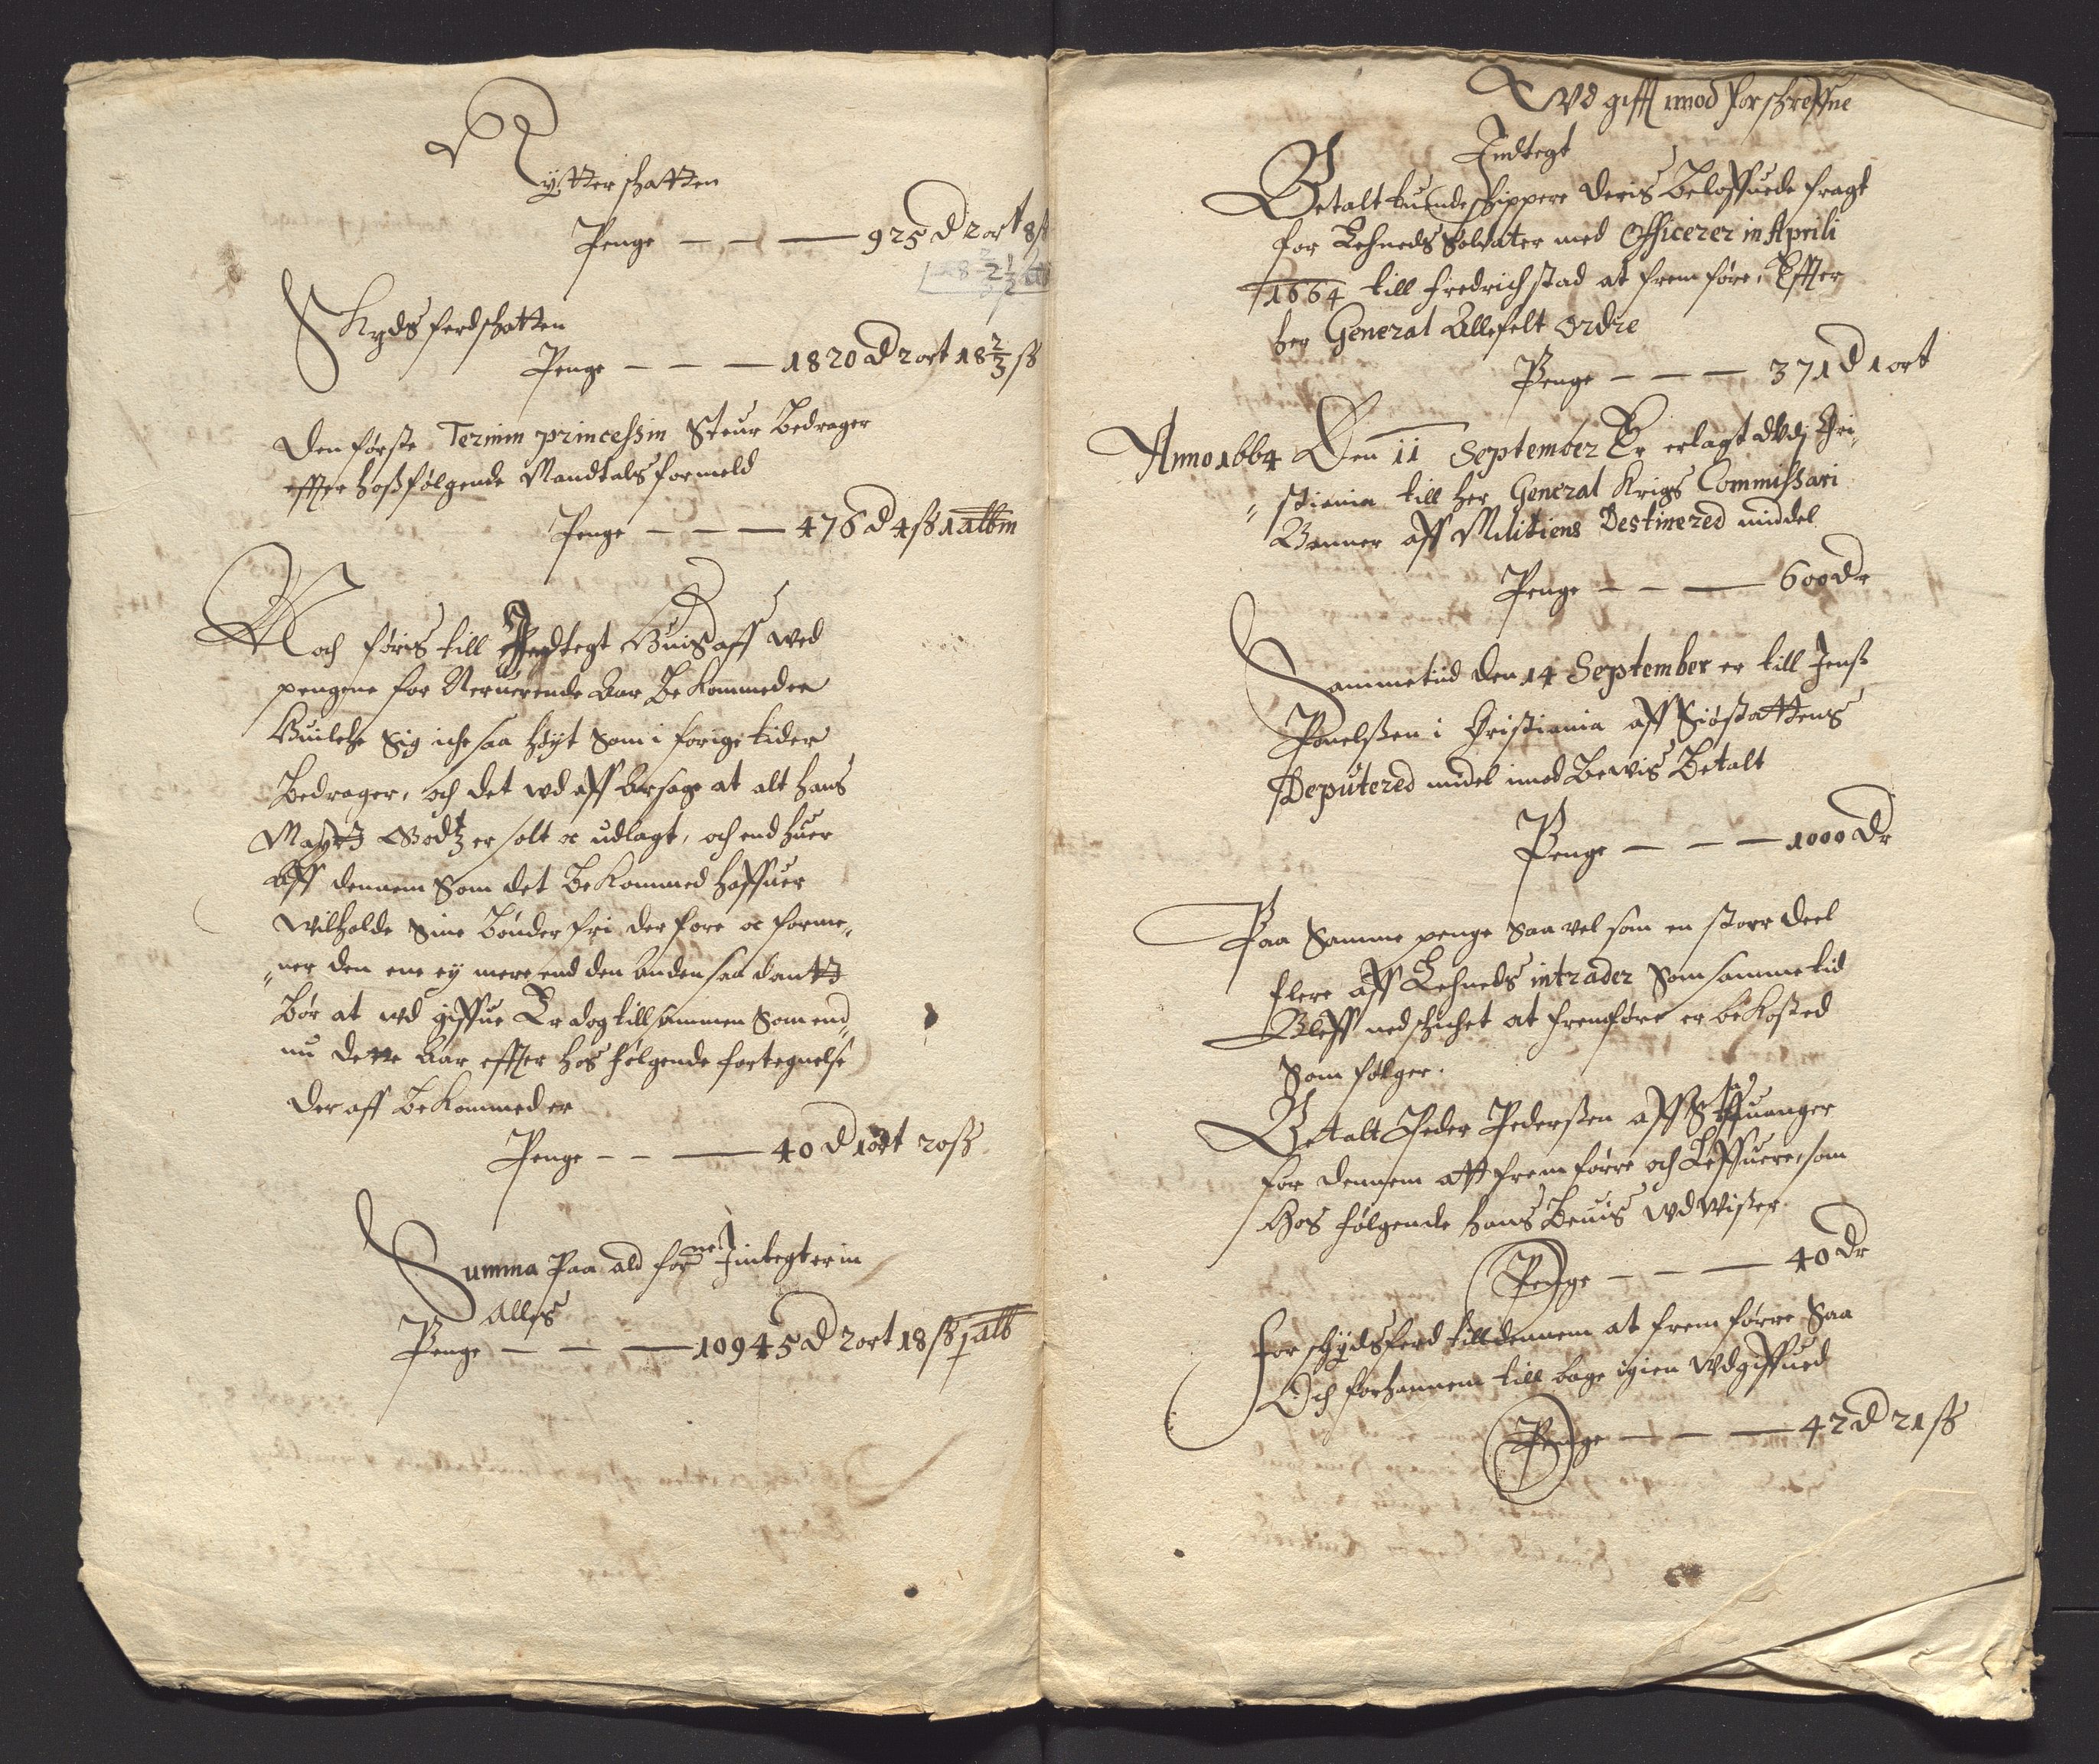 Rytterschatten
Penge — — — 925 d 2 ort 8 ß
Skydsferdschatten
Penge — — — 1820 d 2 ort 18 2/3 ß
Den første Termin princessin Steur Bedrager
effter hoßfølgende Mandtals formeld
Penge — — — 476 d 4 ß 1 alb
Noch føris till Indtegt Huis aff wed
pengene for Nerverende Aar Bekommed er
Huilche Sig iche saa høyt Som i forige tider
Bedrager, och det wd aff Aarsage at alt hans
Maytz Godtz er solt oc udlagt, och end huer
aff dennem Som det Bekommed haffuer
wilholde Sine Bønder fri derfore oc forme„
„ner den ene ey mere end den anden saadantt
Bør at wd giffue Er dog tillsammen Som end„
nu dette Aar effter hos følgende fortegnelse
der aff Bekommed er
Penge — — — 40 d 1 ort 20 ß
Summa Paa ald forne Jndtegter in
Alles
Penge — — — 10945 d 2 ort 18 ß j alb
Wd gifft imod forschreffne
Indtegt
Betalt tuende schippere deris Beloffuede fragt
for Lehneds Soldater med Officerer in Aprili
1664 till Fredrichstad at fremføre, Effter
her General Allefelt Ordre
Penge — — — 371 d 1 ort
Anno 1664 Den 11 September Er erlagt udj Chri„
„stiania till her General Krigs Commissari
Banner aff Militiens Destinered middel
Penge — — — 600 dr
Sammetid den 14 September er till Jenß
Powelßen i Christiania aff Siøstattens
Deputered midel imod Bewis Betalt
Penge — — — 1000 dr
Paa Samme penge Saa vel som en storr deel
flere aff Lehneds intrader Som samme tid
Bleff nedschichet at fremføre er bekosted
Som følger.
Betalt Peder Pederßen aff Staffuanger
for dennem att fremførre och Leffuere, som
Hos følgende hans Beuis wdwißer
Penge — — — 40 dr
for schydsferd till dennem at fremførre Saa
Och forhannem till bage igien wdgiffued
Penge — — — 42 d 21 ß